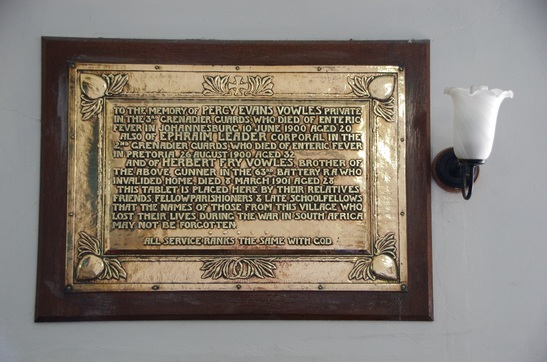 TO THE MEMORY OF PERCY EVANS VOWLES PRIVATE
IN THE 3RD GRENADIER GUARDS WHO DIED OF ENTERIC
FEVER IN JOHANNESBURG 10 JUNE 1900 AGED 20
ALSO OF EPHRAIM LEADER CORPORAL IN THE
2ND GRENADIER GUARDS WHO DIED OF ENTERIC FEVER
IN PRETORIA 26 AUGUST 1900 AGED 32
AND OF HERBERT FRY VOWLES, BROTHER OF
THE ABOVE GUNNER IN THE 63RD BATTERY R.A WHO
INVALIDED HOME DIED 8 MARCH 1901 AGED 28
THIS TABLET IS PLACED HERE BY THEIR RELATIVES
FRIENDS, FELLOW PARISHIONERS & LATE SCHOOLFELLOWS
THAT THE NAMES OF THOSE FROM THIS VILLAGE WHO
LOST THEIR LIVES DURING THE WAR IN SOUTH AFRICA
MAY NOT BE FORGOTTEN
ALL SERVICE RANKS THE SAME WITH GOD